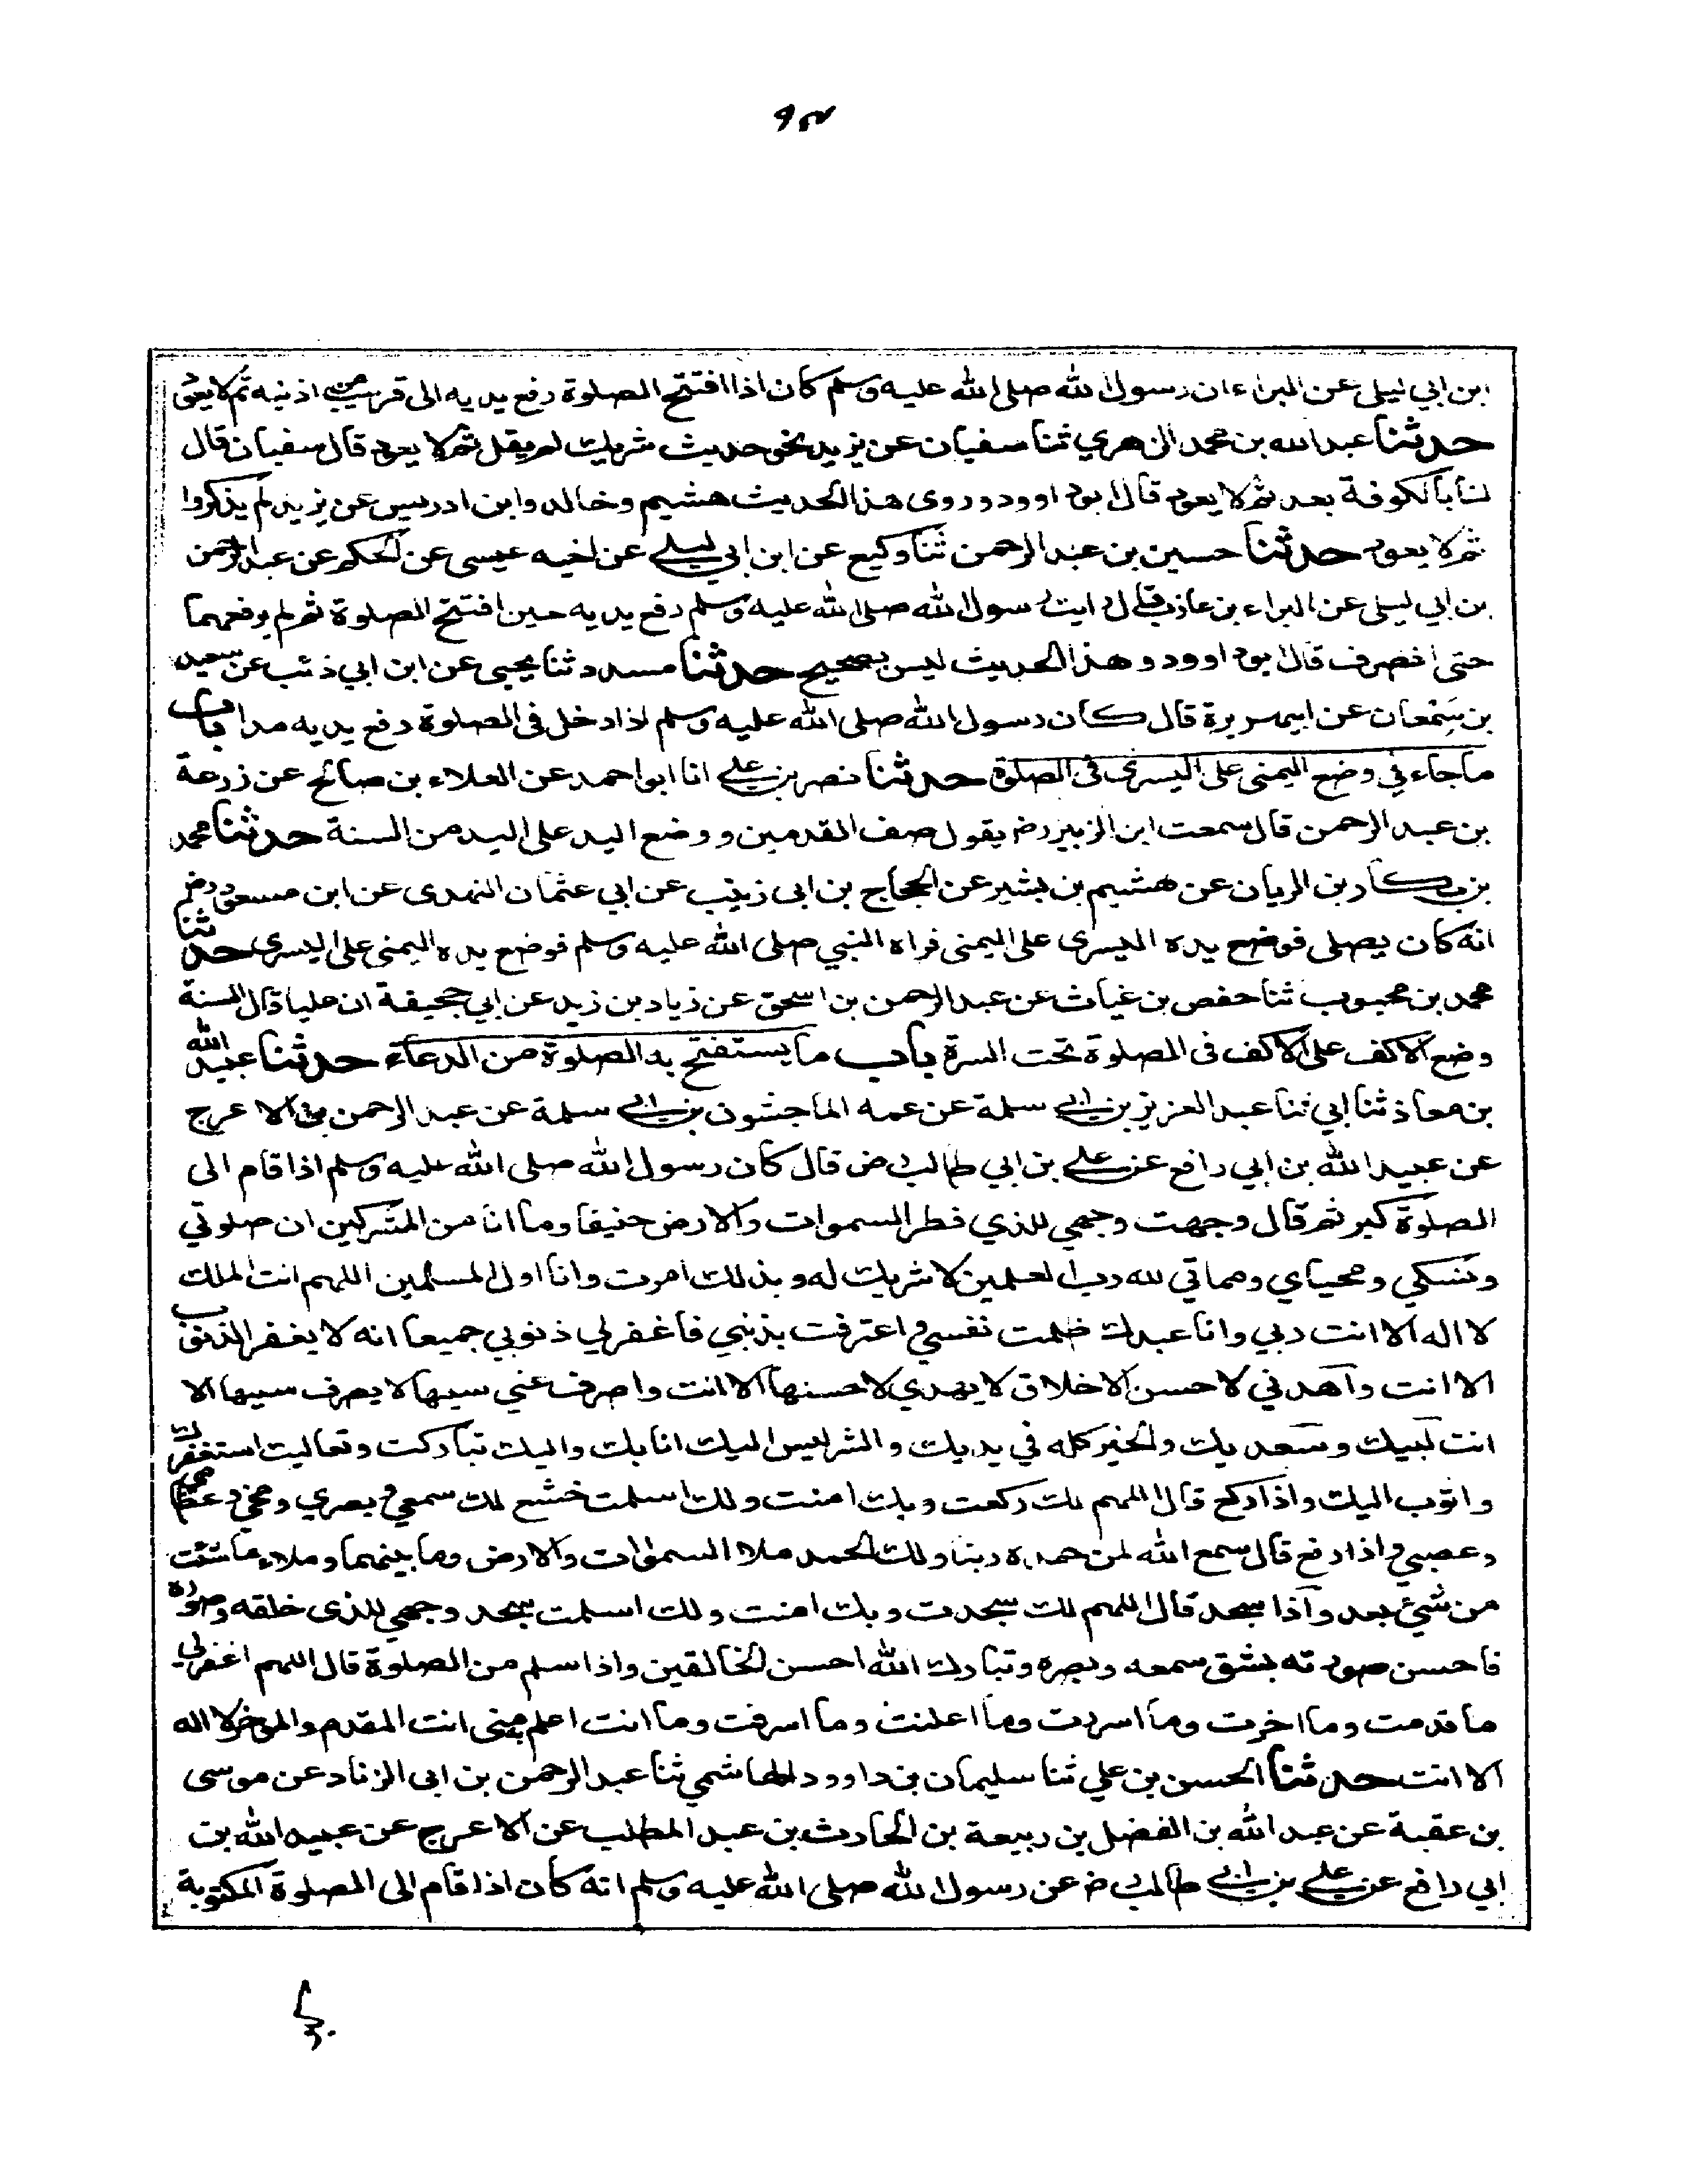 ابن ابي ليلى عن البراء ان رسول الله صلى الله عليه وسلم كان اذا افتتح الصلوة رفع يديه الى قريب من اذنيه ثم لا يعود
حدثنا عبد الله بن محمد الزهري ثنا سفيان عن يزيد نحو حديث شريك لم يقل ثم لا يعود قال سفيان قال
لنا بالكوفة بعد ثم لا يعود قال ابو داوود وروى هذا الحديث هشيم وخالد وابن ادريس عن يزيد لم يذكروا
ثم لا يعود حدثنا حسين بن عبد الرحمن ثنا وكيع عن ابن ابي ليلى عن اخيه عيسى عن الحكم عن عبد الرحمن
بن ابي ليلى عن البراء بن عازب قال رايت رسول الله صلى الله عليه وسلم رفع يديه حين افتتح الصلوة ثم لم يرفعهما
حتى انصرف قال ابو داوود وهذا الحديث ليس بصحيح حدثنا مسدد ثنا يحيى عن ابن ابي ذئب عن سعيد
بن سمعان عن ابي هريرة قال كان رسول الله صلى الله عليه وسلم اذا دخل فى الصلوة رفع يديه مدا باب
ما جاء في وضع اليمنى على اليسرى فى الصلوة حدثنا نصر بن علي انا ابو احمد عن العلاء بن صالح عن زرعة
بن عبد الرحمن قال سمعت ابن الزبير رض يقول صف القدمين ووضع اليد على اليد من السنة حدثنا محمد
بن بكار بن الريان عن هشيم بن بشير عن الحجاج بن ابى زينب عن ابي عثمان النهدى عن ابن مسعود رض
انه كان يصلى فوضع يده اليسرى على اليمنى فراه النبي صلى الله عليه وسلم فوضع يده اليمنى على اليسرى حدثنا
محمد بن محبوب ثنا حفص بن غياث عن عبد الرحمن بن اسحق عن زياد بن زيد عن ابي جحيفة ان عليا قال السنة
وضع الاكف على الاكف فى الصلوة تحت السرة باب ما يستفتح به الصلوة من الدعاء حدثنا عبيد الله
بن معاذ ثنا ابي ثنا عبد العزيز بن ابي سلمة عن عمه الماجشون بن ابي سلمة عن عبد الرحمن بن الاعرج
عن عبيد الله بن ابي رافع عن علي بن ابي طالب رض قال كان رسول الله صلى الله عليه وسلم اذا قام الى
الصلوة كبر ثم قال وجهت وجهي للذي فطر السموات والارض حنيفا وما انا من المشركين ان صلوتي
ونسكي ومحياي ومماتي لله رب العلمين لا شريك له وبذلك امرت وانا اول المسلمين اللهم انت الملك
لا اله الا انت ربي وانا عبدك ظلمت نفسي واعترفت بذنبي فاغفر لي ذنوبي جميعا انه لا يغفر الذنوب
الا انت واهدني لاحسن الاخلاق لا يهدي لاحسنها الا انت واصرف عني سيها لا يصرف سيها الا
انت لبيك وسعديك والخير كله في يديك والشر ليس اليك انا بك واليك تباركت وتعاليت استغفرك
واتوب اليك واذا ركع قال اللهم لك ركعت وبك امنت ولك اسلمت خشع لك سمعي وبصري ومخي وعظامي
وعصبي واذا رفع قال سمع الله لمن حمده ربنا ولك الحمد ملا السموات والارض وما بينهما وملاء ما شئت
من شئ بعد واذا سجد قال اللهم لك سجدت وبك امنت ولك اسلمت سجد وجهي للذى خلقه وصوره
فاحسن صورته بشق سمعه وبصره وتبارك الله احسن الخالقين واذا سلم من الصلوة قال اللهم اغفر لي
ما قدمت وما اخرت وما اسررت وما اعلنت وما اسرفت وما انت اعلم به منى انت المقدم والموخر لا اله
الا انت حدثنا الحسن بن علي ثنا سليمان بن داوود الهاشمي ثنا عبد الرحمن بن ابى الزناد عن موسى
بن عقبة عن عبد الله بن الفضل بن ربيعة بن الحارث بن عبد المطلب عن الاعرج عن عبيد الله بن
ابي رافع عن علي بن ابي طالب رض عن رسول الله صلى الله عليه وسلم انه كان اذا قام الى الصلوة المكتوبة